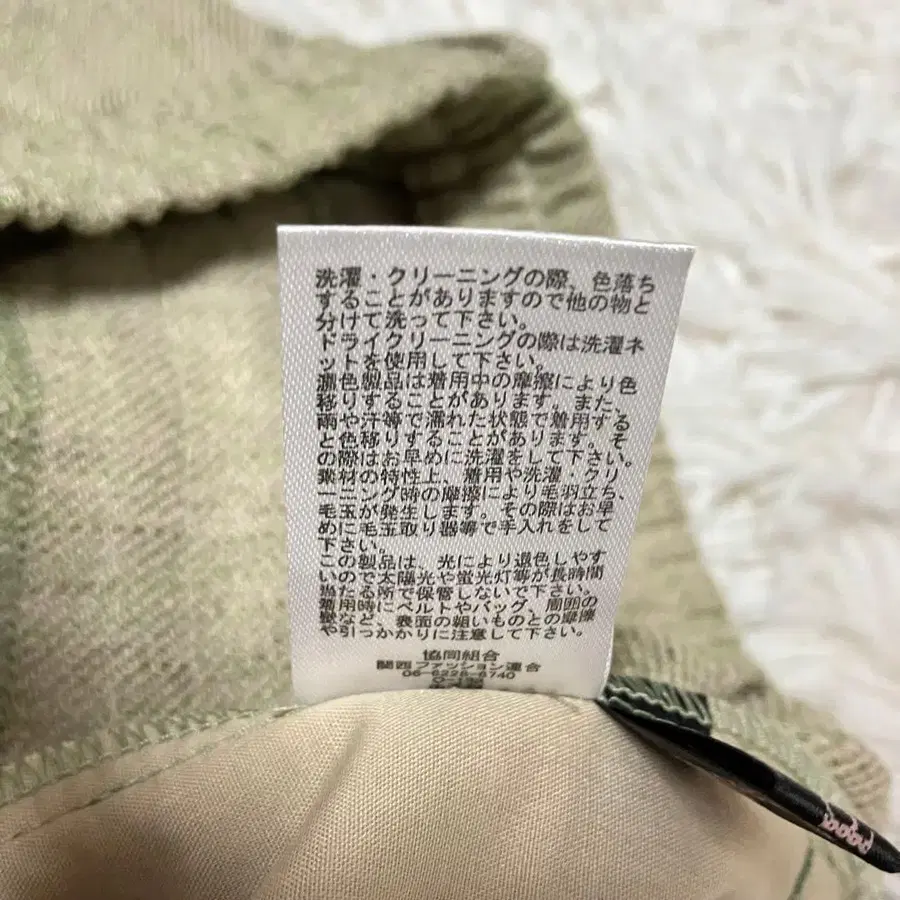 洗濯・クリーニングの際、色落ち
することがありますので他の物と
分けて洗って下さい。
ドライクリーニングの際は洗濯ネ
ットを使用して下さい。
濃色製品は着用中の摩擦により色
移りすることがあります。また、
雨や汗等で濡れた状態で着用する
と色移りすることがあります。そ
の際はお早めに洗濯をして下さい。
素材の特性上、着用や洗濯・クリ
ーニング時の摩擦により毛羽立ち、
毛玉が発生します。その際はお早
めに毛玉取り器等で手入れをして
下さい。
この製品は、光により退色しやす
いので太陽光や蛍光灯等が長時間
当たる所で保管しないで下さい。
着用時にベルトやバッグ、周囲の
壁など、表面の粗いものとの摩擦
や引っかかりに注意して下さい。
協同組合
関西ファッション連合
06-6228-6740